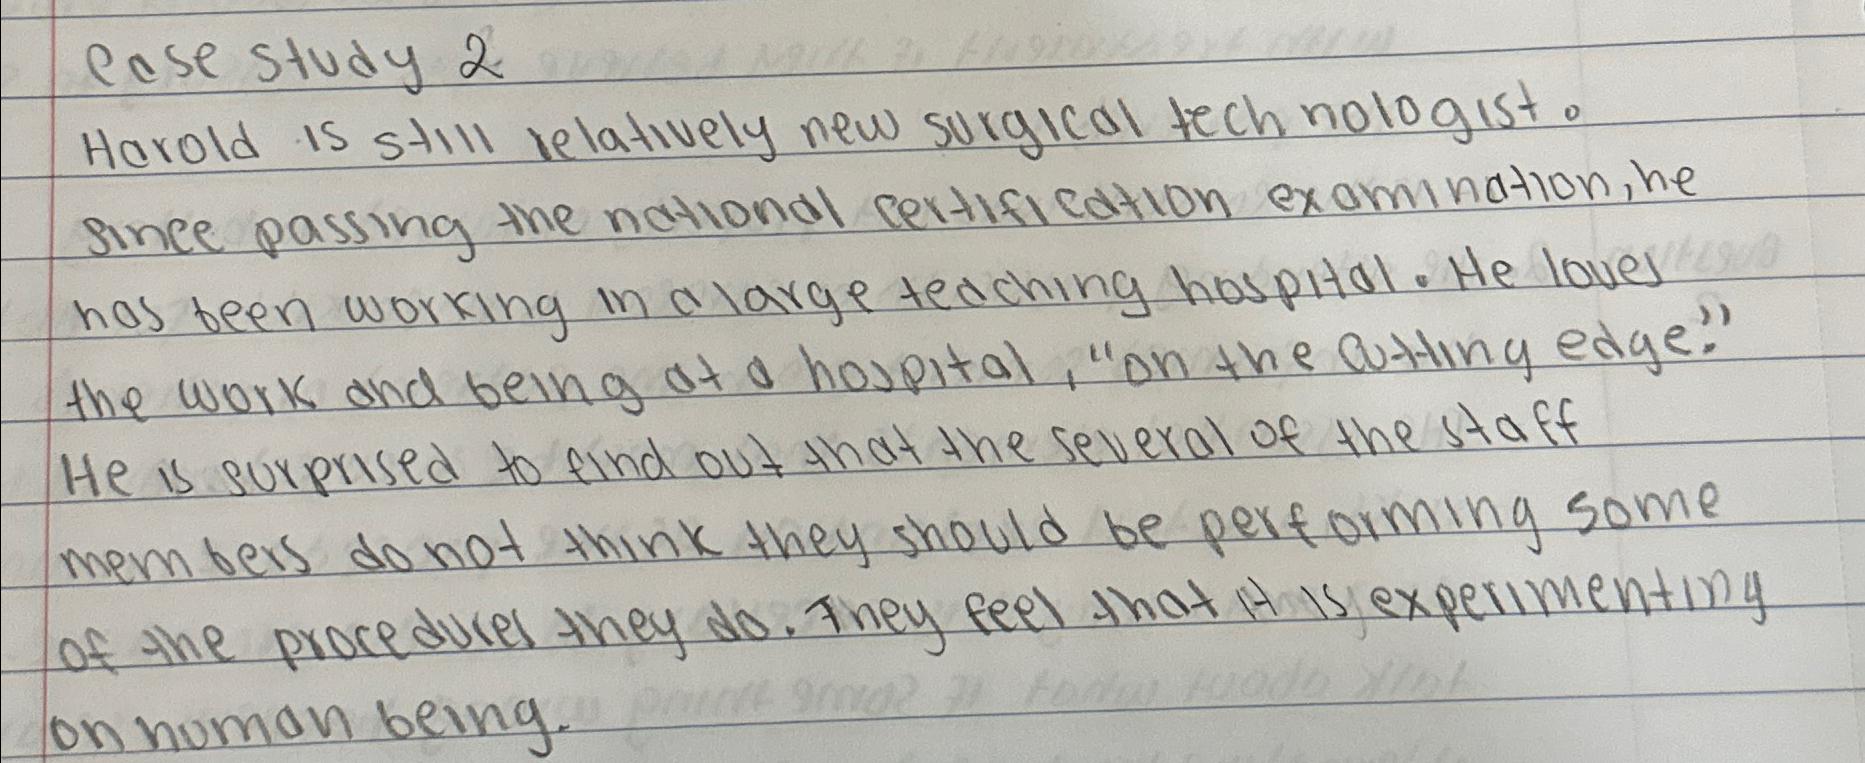 Case study 2
Harold is still relatively new surgical technologist.
since passing the national certification examination, he
has been working in a large teaching hospital. He loves
the work and being at a hospital, "on the cutting edge."
He is surprised to find out that the several of the staff
members do not think they should be performing some
of the procedures they do. They feel that it is experimenting
on human being.